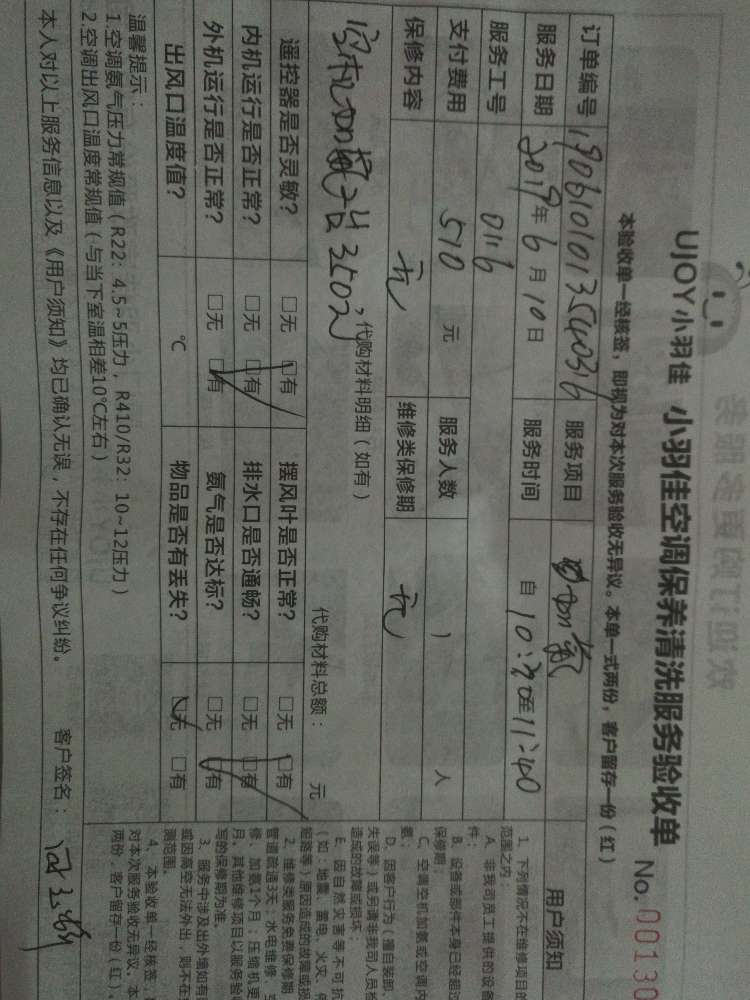 UJOY小羽佳 小羽佳空调保养清洗服务验收单 No. 00130
本验收单一经核签，即视为对本次服务验收无异议。本单一式两份，客户留存一份（红）
订单编号 服务项目 加氟
服务日期 2019年6月10日 服务时间 自10:20至11:40
服务工号 0116
支付费用 510 元 服务人数 人
保修内容 无 维修类保修期 无
代购材料明细（如有） 代购材料总额： 元
遥控器是否灵敏？ □无 □有 摆风叶是否正常？ □无 □有
内机运行是否正常？ □无 □有 排水口是否通畅？ □无 □有
外机运行是否正常？ □无 □有 氨气是否达标？ □无 □有
出风口温度值？ ℃ 物品是否有丢失？ □无 □有
温馨提示：
1.空调氨气压力常规值（R22：4.5~5压力，R410/R32：10~12压力）
2.空调出风口温度常规值（与当下室温相差10℃左右）
本人对以上服务信息以及《用户须知》均已确认无误，不存在任何争议纠纷。 客户签名：
用户须知
1、下列情况不在维修项目的
范围之内：
A、非我司员工提供的设备
件；
B、设备或部件本身已经超过
保修期；
C、空调空机加氨或空调内
氨；
D、因客户行为（擅自装卸、
失误等）或另请非我司人员检
造成的故障或损坏；
E、因自然灾害等不可抗
（如：地震、雷电、火灾、
短路等）原因造成的故障或损
2、维修类服务免费保修期
管道疏通3天；水电维修、
修、加氨1个月；压缩机更
月，其他维修项目以服务验收
写的保修期为准。
3、服务中涉及出外墙如有
或因高空无法外出，则不在
测范围。
4、本验收单一经核签，
对本次服务验收无异议。本
两份，客户留存一份（红）。